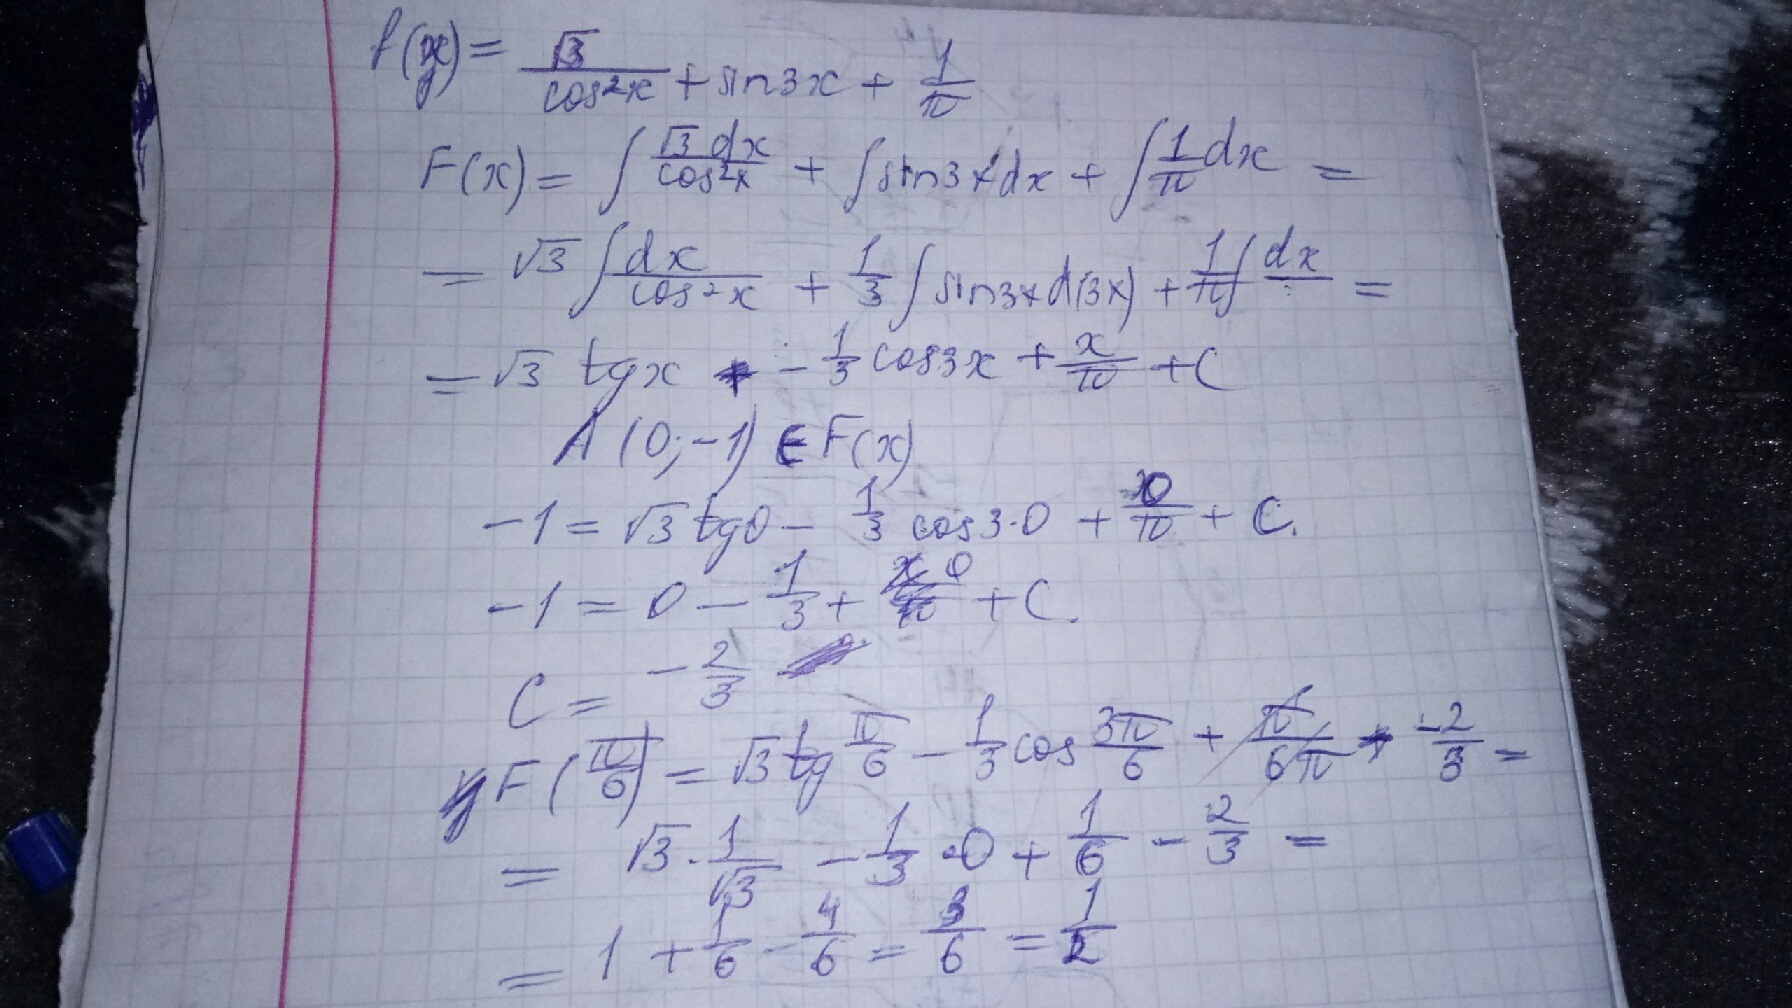 f(x) = √3/cos²x + sin3x + 1/π
F(x) = ∫ √3 dx/cos²x + ∫ sin3x dx + ∫ 1/π dx =
= √3 ∫ dx/cos²x + 1/3 ∫ sin3x d(3x) + 1/π ∫ dx =
= √3 tgx - 1/3 cos3x + x/π + C
A (0; -1) ∈ F(x)
-1 = √3 tg0 - 1/3 cos3·0 + 0/π + C.
-1 = 0 - 1/3 + 0 + C.
C = -2/3
F(π/6) = √3 tg π/6 - 1/3 cos 3π/6 + π/6π - 2/3 =
= √3 · 1/√3 - 1/3 · 0 + 1/6 - 2/3 =
= 1 + 1/6 - 4/6 = 3/6 = 1/2